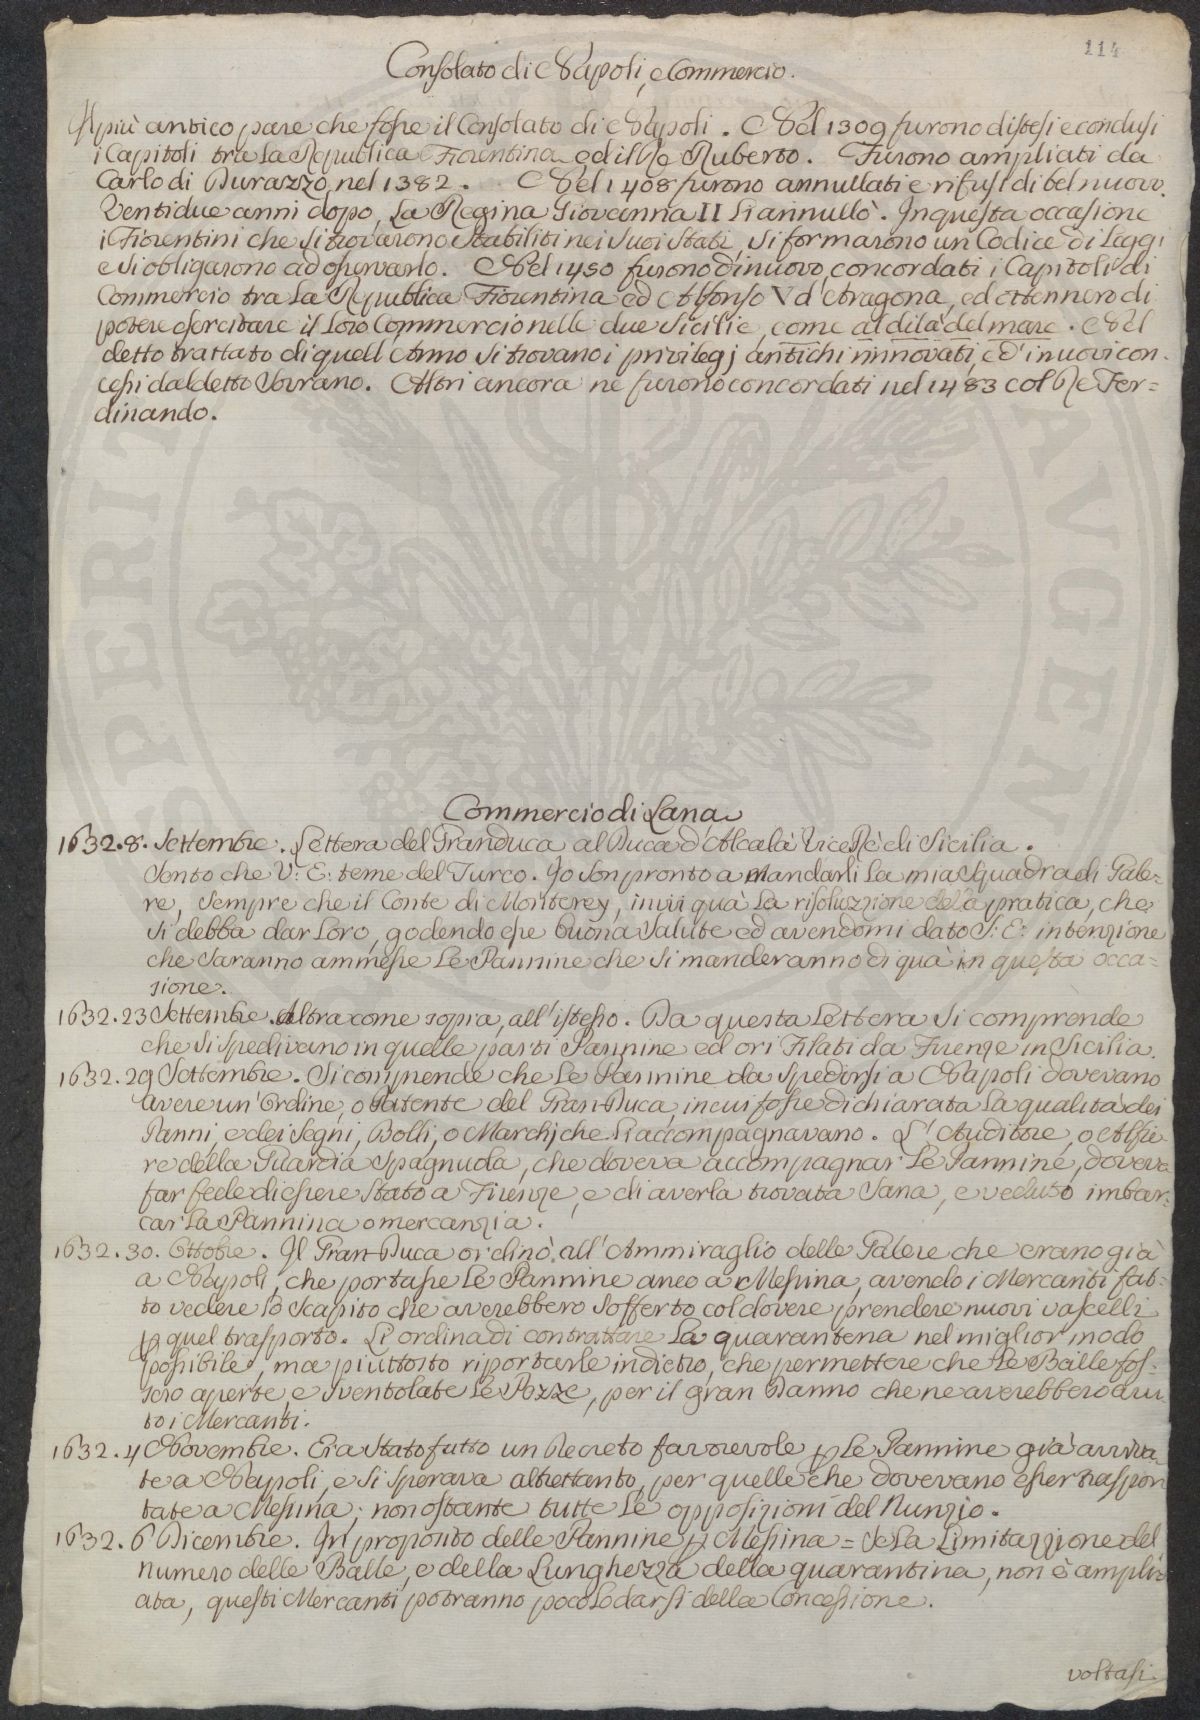 114
Consolato di Napoli, e Commercio.
Il più antico pare che fosse il Consolato di Napoli. Nel 1309 furono distesi e conclusi
i Capitoli tra la Republica Fiorentina ed il Re Ruberto. Furono ampliati da
Carlo di Durazzo nel 1382. Nel 1408 furono annullati e rifusi di bel nuovo.
Ventidue anni dopo, la Regina Giovanna II li annullò. In questa occasione
i Fiorentini che si trovarono stabiliti nei suoi stati, si formarono un Codice di Leggi
e si obligarono ad osservarlo. Nel 1450 furono di nuovo concordati i Capitoli di
Commercio tra la Republica Fiorentina ed Alfonso V d'Aragona, ed ottennero di
potere esercitare il loro Commercio nelle due Sicilie, come al di là del mare. Nel
detto trattato di quell'Anno si trovano i privilegj antichi rinnovati, e d'i nuovi con-
cessi dal detto Sovrano. Altri ancora ne furono concordati nel 1483 col Re Fer=
dinando.
Commercio di Lana
1632. 8. Settembre. Lettera del Granduca al Duca d'Alcalà Vice Rè di Sicilia.
Sento che V: E: teme del Turco. Io son pronto a mandarli la mia Squadra di Gale=
re, sempre che il Conte di Monterey, invii quà la risoluzzione della pratica, che
si debba dar loro, godendo esse buona salute ed avendomi dato S: E: intenzione
che saranno ammesse le Pannine che si manderanno di quà in questa occa=
sione.
1632. 23 Settembre. Altra come sopra, all'istesso. Da questa Lettera si comprende
che si spedivano in quelle parti Pannine ed ori Filati da Firenze in Sicilia.
1632. 29 Settembre. Si comprende che le Pannine da spedirsi a Napoli dovevano
avere un'Ordine, o Patente del Gran-Duca, in cui fosse dichiarata la qualità dei
Panni, e dei segni, Bolli, o Marchj che li accompagnavano. L'Auditore, o Alfie
re della Guardia Spagnuola, che doveva accompagnar le Pannine, doveva
far fede di essere stato a Firenze, e di averla trovata sana, e veduto imbar=
car la Pannina o mercanzia.
1632. 30. Ottobre. Il Gran-Duca ordinò all'Ammiraglio delle Galere che erano già
a Napoli, che portasse le Pannine anco a Messina, avendo i Mercanti fat=
to vedere lo scapito che averebbero sofferto col dovere prendere nuovi vascelli
p quel trasporto. Li ordina di contrattare la quarantena nel miglior modo
possibile, ma piuttosto riportarle indietro, che permettere che le Balle fos=
sero aperte, e sventolate le Pezze, per il gran danno che ne averebbero avu
to i Mercanti.
1632. 4 Novembre. Era stato fatto un Decreto favorevole p le Pannine già arriva=
te a Napoli, e si sperava altrettanto, per quelle che dovevano esser traspor
tate a Messina; non ostante tutte le opposizioni del Nunzio.
1632. 6 Dicembre. In proposito delle Pannine p Messina = Se la Limitazzione del
numero delle Balle, e della Lunghezza della quarantina, non è amplia
ata, questi Mercanti potranno poco lodarsi della Concessione.
voltasi.